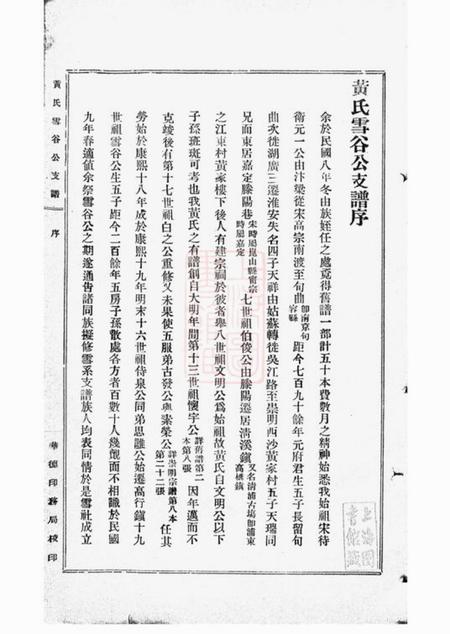 黃氏雪谷公支譜序
余於民國八年冬由族姪任之處覓得舊譜一部計五十本費數月之精神始悉我始祖宋待
衛元一公由汴梁從宋高宗南渡至句曲卽南京句容縣距今七百九十餘年元府君生五子長留句
曲次徙湖廣三遷淮安失名四子天祥由姑蘇轉徙吳江路至崇明西沙黃家村五子天瑞同
兄而東居嘉定滕陽巷宋時屬崑山縣甯宗時屬嘉定七世祖伯俊公由滕陽遷居淸溪鎭又名淸浦古塲卽浦東高橋鎭
之江東村黃家樓下後人有建宗祠於彼者舉八世祖文明公爲始祖故黃氏自文明公以下
子孫斑斑可考也我黃氏之有譜創自大明年間第十三世祖懷宇公詳舊譜第二本第八張因年邁而不
克竣後有第十七世祖白之公重修又未果使五服弟古發公與素榮公詳崇明宗譜第八本第二十二張任其
勞始於康熙十八年成於康熙十九年明末十六世祖侍泉公同弟思譙公始遷高行鎭十九
世祖雪谷公生五子距今二百餘年五房子孫散處各方者百數十人幾覿面而不相識於民國
九年春適値余祭雪谷公之期遂通告諸同族擬修雪系支譜族人均表同情於是雪社成立
黃氏雪谷公支譜
序
華德印務局校印